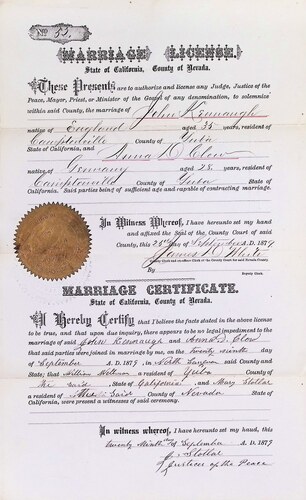 No. 52.
MARRIAGE LICENSE.
State of California, County of Nevada.
These Presents are to authorize and license any Judge, Justice of the
Peace, Mayor, Priest, or Minister of the Gospel of any denomination, to solemnize
within said County, the marriage of John Kewaugh
native of England aged 35 years, resident of
Camptonville County of Yuba
State of California, and Anna D Clow
native of Germany aged 28 years, resident of
Camptonville County of Yuba
State of California. Said parties being of sufficient age and capable of contracting marriage.
In Witness Whereof, I have hereunto set my hand
and affixed the Seal of the County Court of said
County, this 28th day of September A.D. 1879
James D. White
By
Deputy Clerk.
MARRIAGE CERTIFICATE.
State of California, County of Nevada.
I Hereby Certify that I believe the facts stated in the above license
to be true, and that upon due inquiry, there appears to be no legal impediment to the
marriage of said John Kewaugh and Anna D. Clow
that said parties were joined in marriage by me, on the twenty ninth day of
September A.D. 1879, in North San Juan said County and
State; that William Willman a resident of Yuba
the said State of California and Mary Stottlar
a resident of the said County of Nevada State of
California, were present as witnesses of said ceremony.
In witness whereof, I have hereunto set my hand, this
twenty Ninth day of September A.D. 1879
J. Stottlar
Justice of the Peace